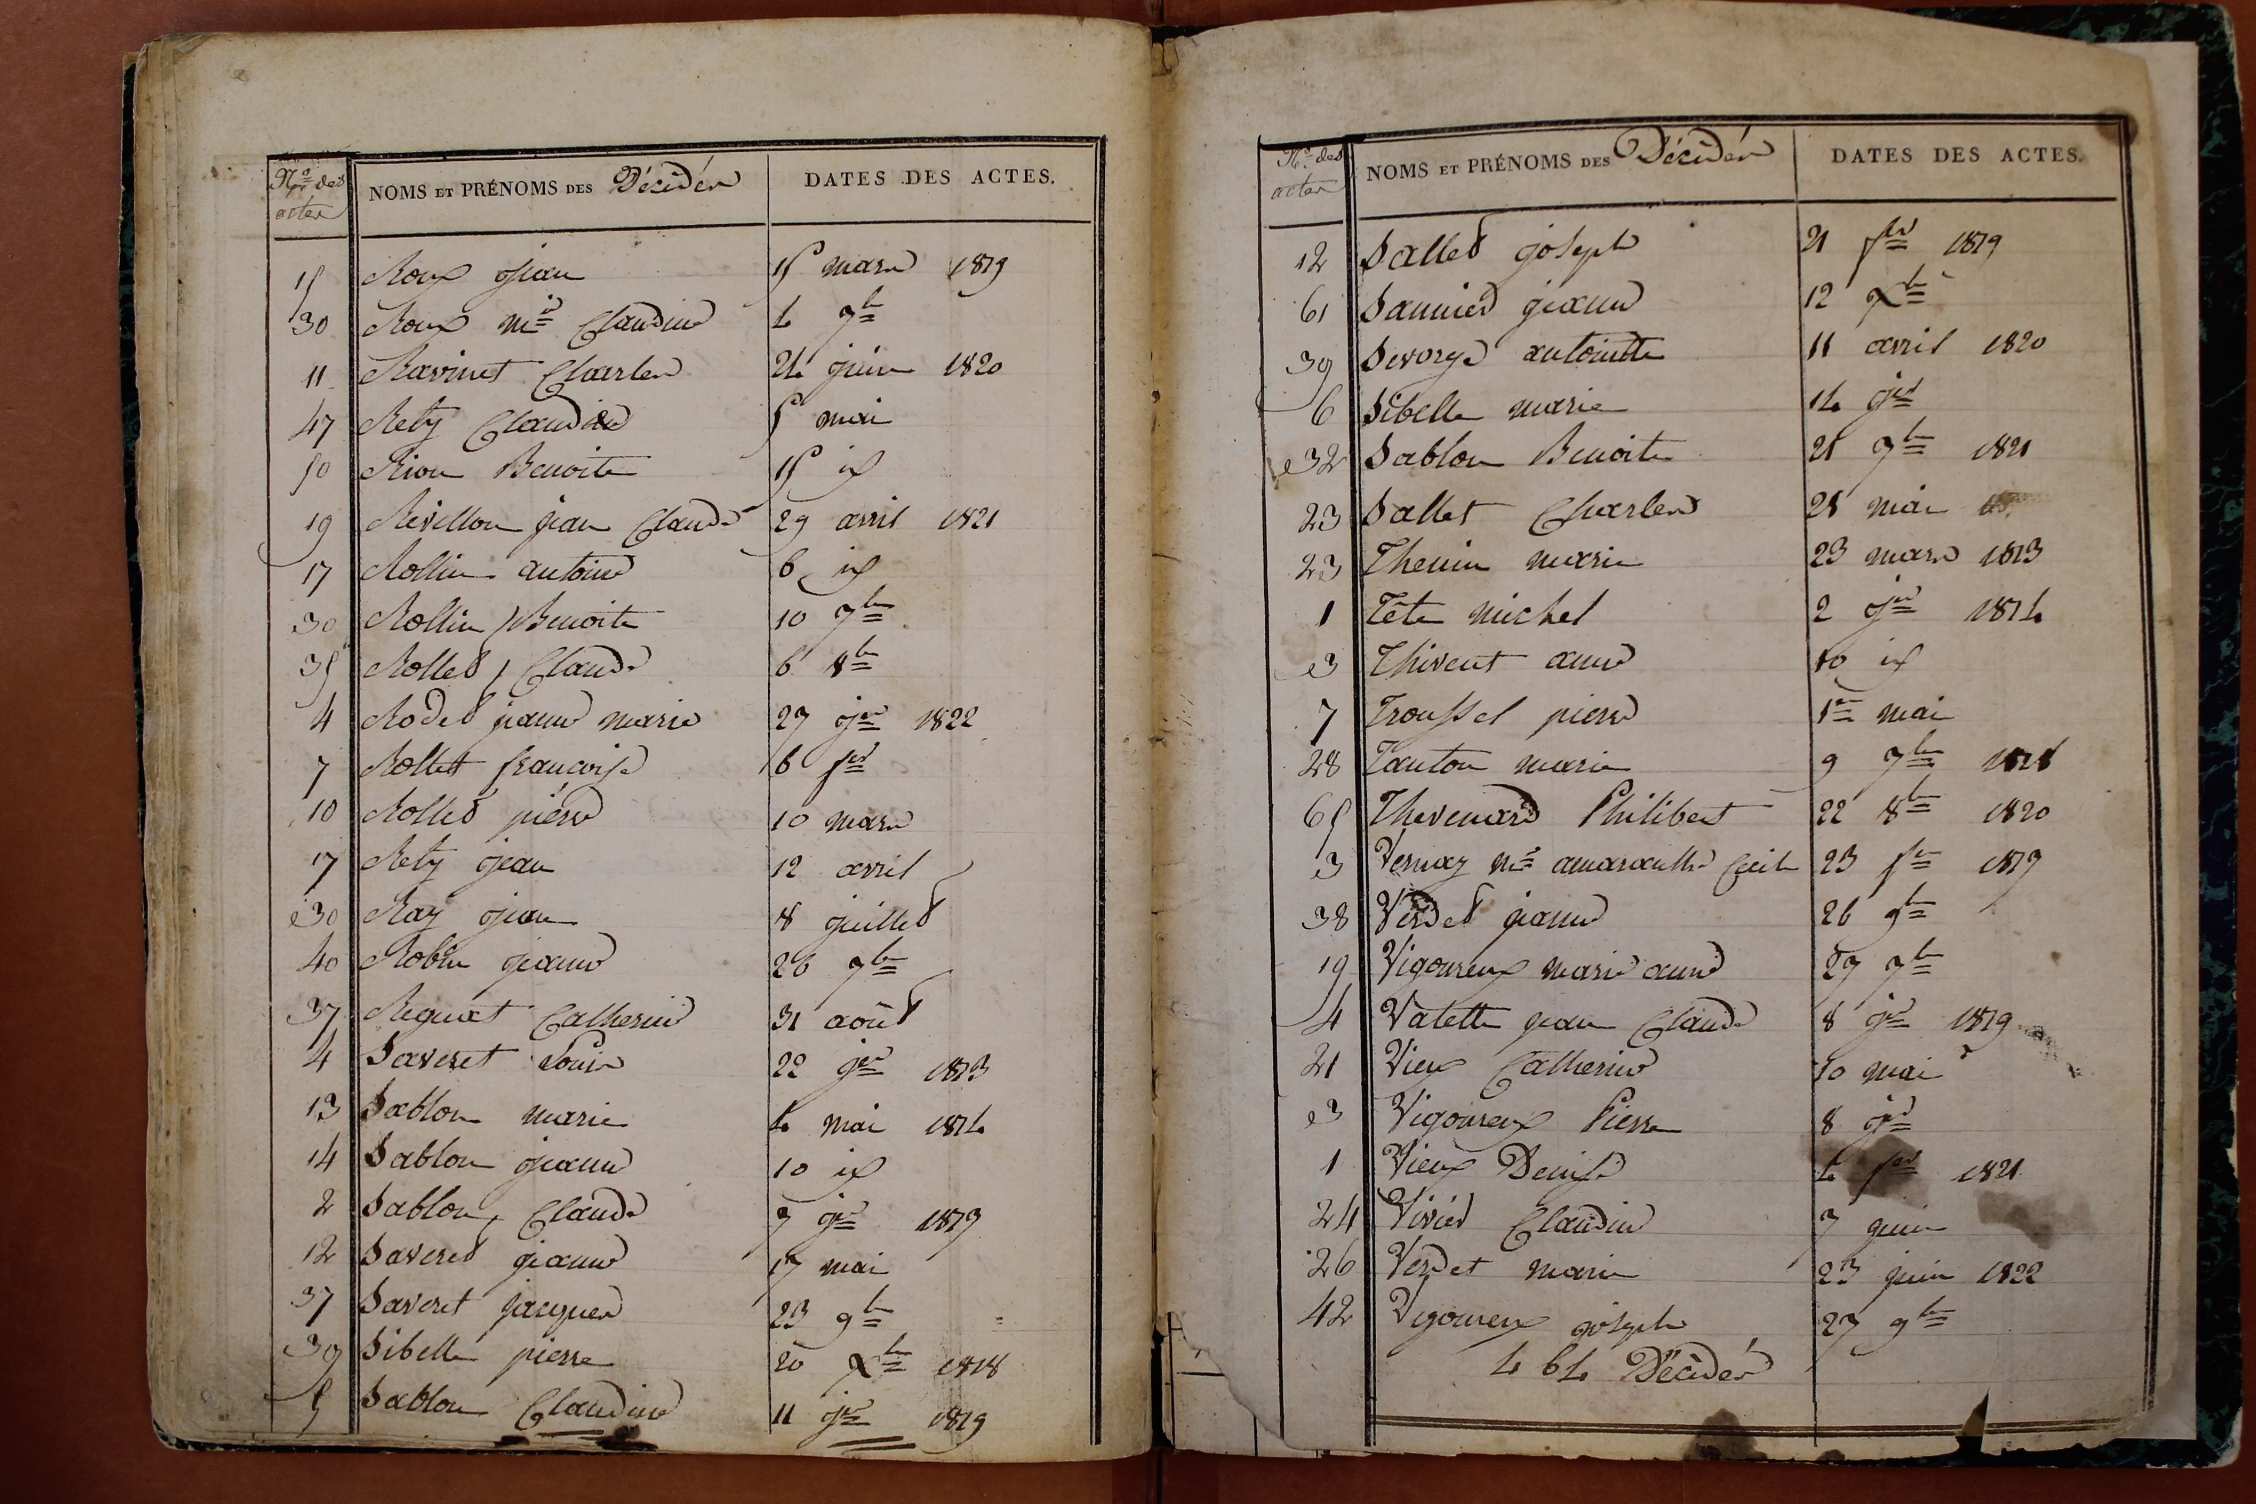 Nos des actes NOMS ET PRÉNOMS DES Décédés DATES DES ACTES.
15 Roux jean 15 mars 1819
30 Roux mie Claudine 4 7bre
11 Ravinet Charles 24 juin 1820
47 Rety Claudine 5 mai
50 Rion Benoite 15 id
19 Revillon jean Claude 29 avril 1821
17 Rollin antoine 6 id
30 Rollin Benoite 10 7bre
35 Rollet Claude 6 8bre
4 Rodet jeanne marie 27 jer 1822
7 Rollet françoise 6 fer
10 Rollet pierre 10 mars
17 Rety jean 12 avril
30 Ray jean 8 juillet
40 Robin jeanne 26 7bre
37 Requat Catherine 31 août
4 Saveret Louis 22 jer 1813
13 Sablon marie 4 mai 1814
14 Sablon jeanne 10 id
2 Sablon Claude 7 jer
12 Saveret jeanne 17 mai
37 Saveret jacques 23 9bre
39 Sibelle pierre 20 Xbre 1818
5 Sablon Claudine 11 jer 1819
Nos des actes NOMS ET PRÉNOMS DES Décédés DATES DES ACTES.
12 Sallet joseph 21 fer 1819
61 Saunier jeanne 12 Xbre
39 antoinette 11 avril 1820
6 Sibelle marie 14 jer
32 Sablon Benoite 21 9bre 1821
23 Sallet Charles mai
23 Thenin marie 23 mars 1813
1 Tête michel 2 jer 1814
3 Thivent anne 10 id
7 Troussel pierre 1er mai
28 Tanton marie 9 7bre
65 Thevenard Philibert 22 8bre 1820
3 Vernay mie amaranthe Cecile 23 fer
38 Verdet jeanne 26 9bre
19 Vigoureux marie anne 27 7bre
4 Valette jean Claude 8 jer 1819
21 Vieux Catherine 10 mai
3 Vigoureux Pierre 8 jer
1 Vieux Denise 4 fer 1821
24 Vivier Claudine 7 juin
26 Verdet marie 23 juin 1822
42 Vigoureux joseph 27 9bre
464 Décédés